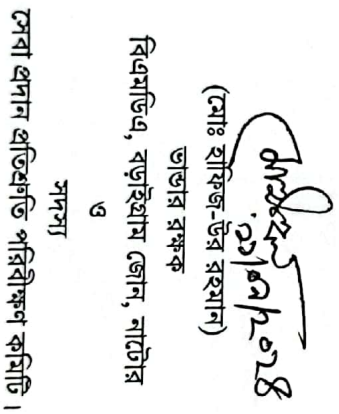 (মোঃ হাফিজ-উর রহমান)
ভান্ডার রক্ষক
বিএমডিএ, বড়াইগ্রাম জোন, নাটোর
ও
সদস্য
সেবা প্রদান প্রতিশ্রুতি পরিবীক্ষণ কমিটি।